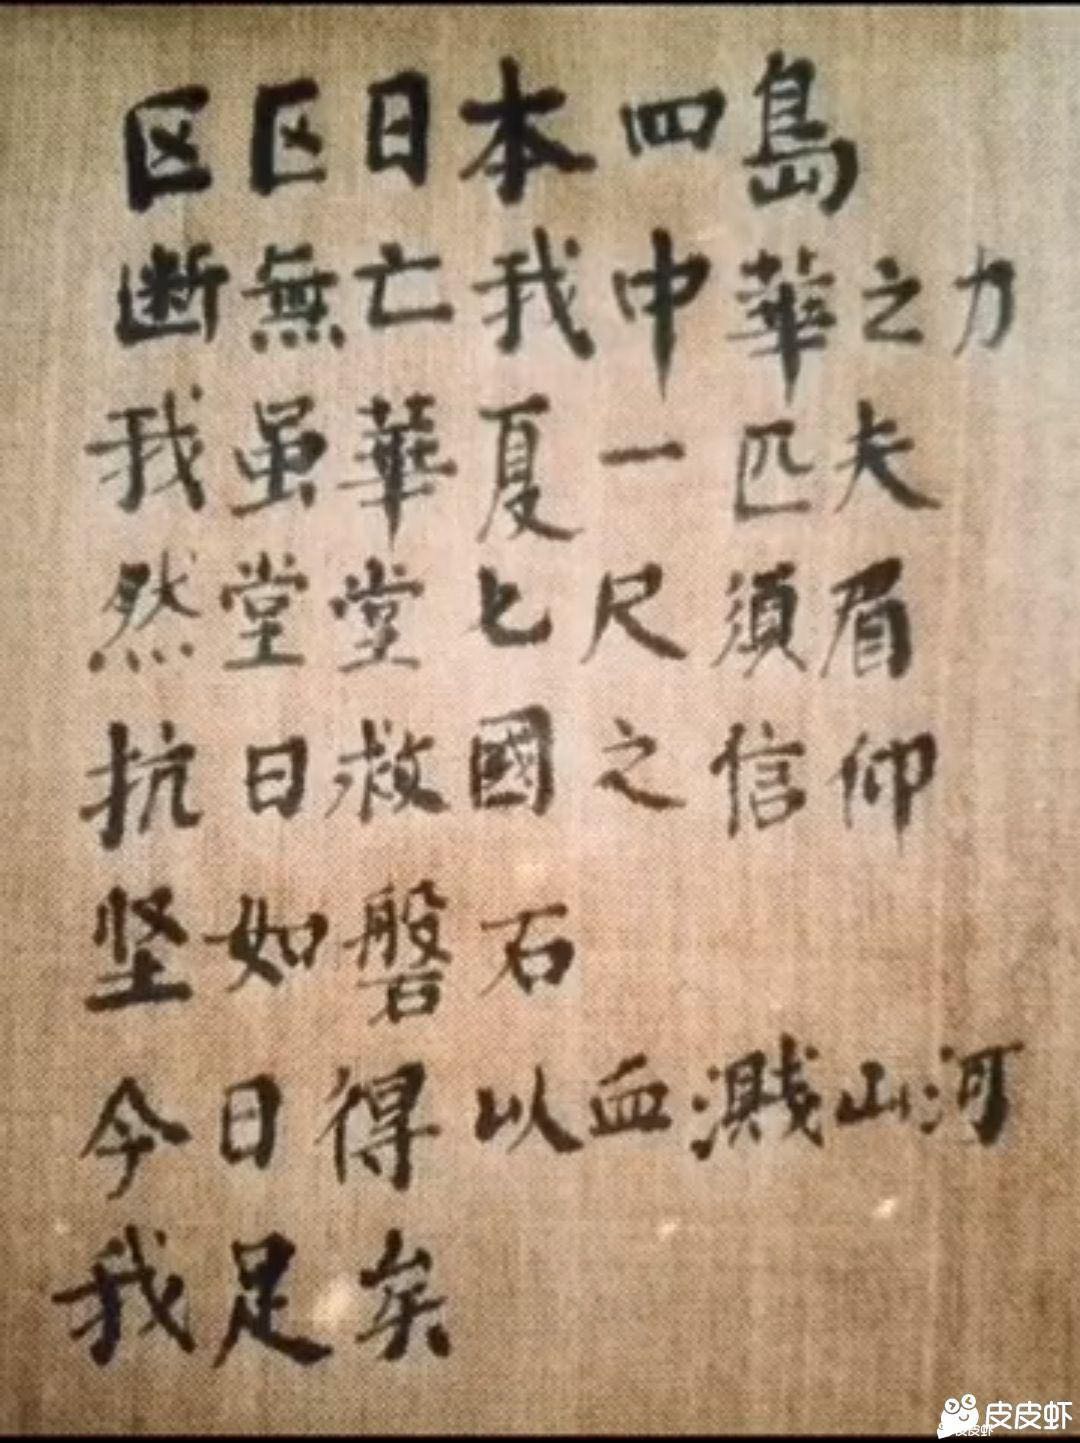 区区日本四島
断無亡我中華之力
我虽華夏一匹夫
然堂堂七尺須眉
抗日救國之信仰
坚如磐石
今日得以血濺山河
我足矣
皮皮虾
皮皮虾